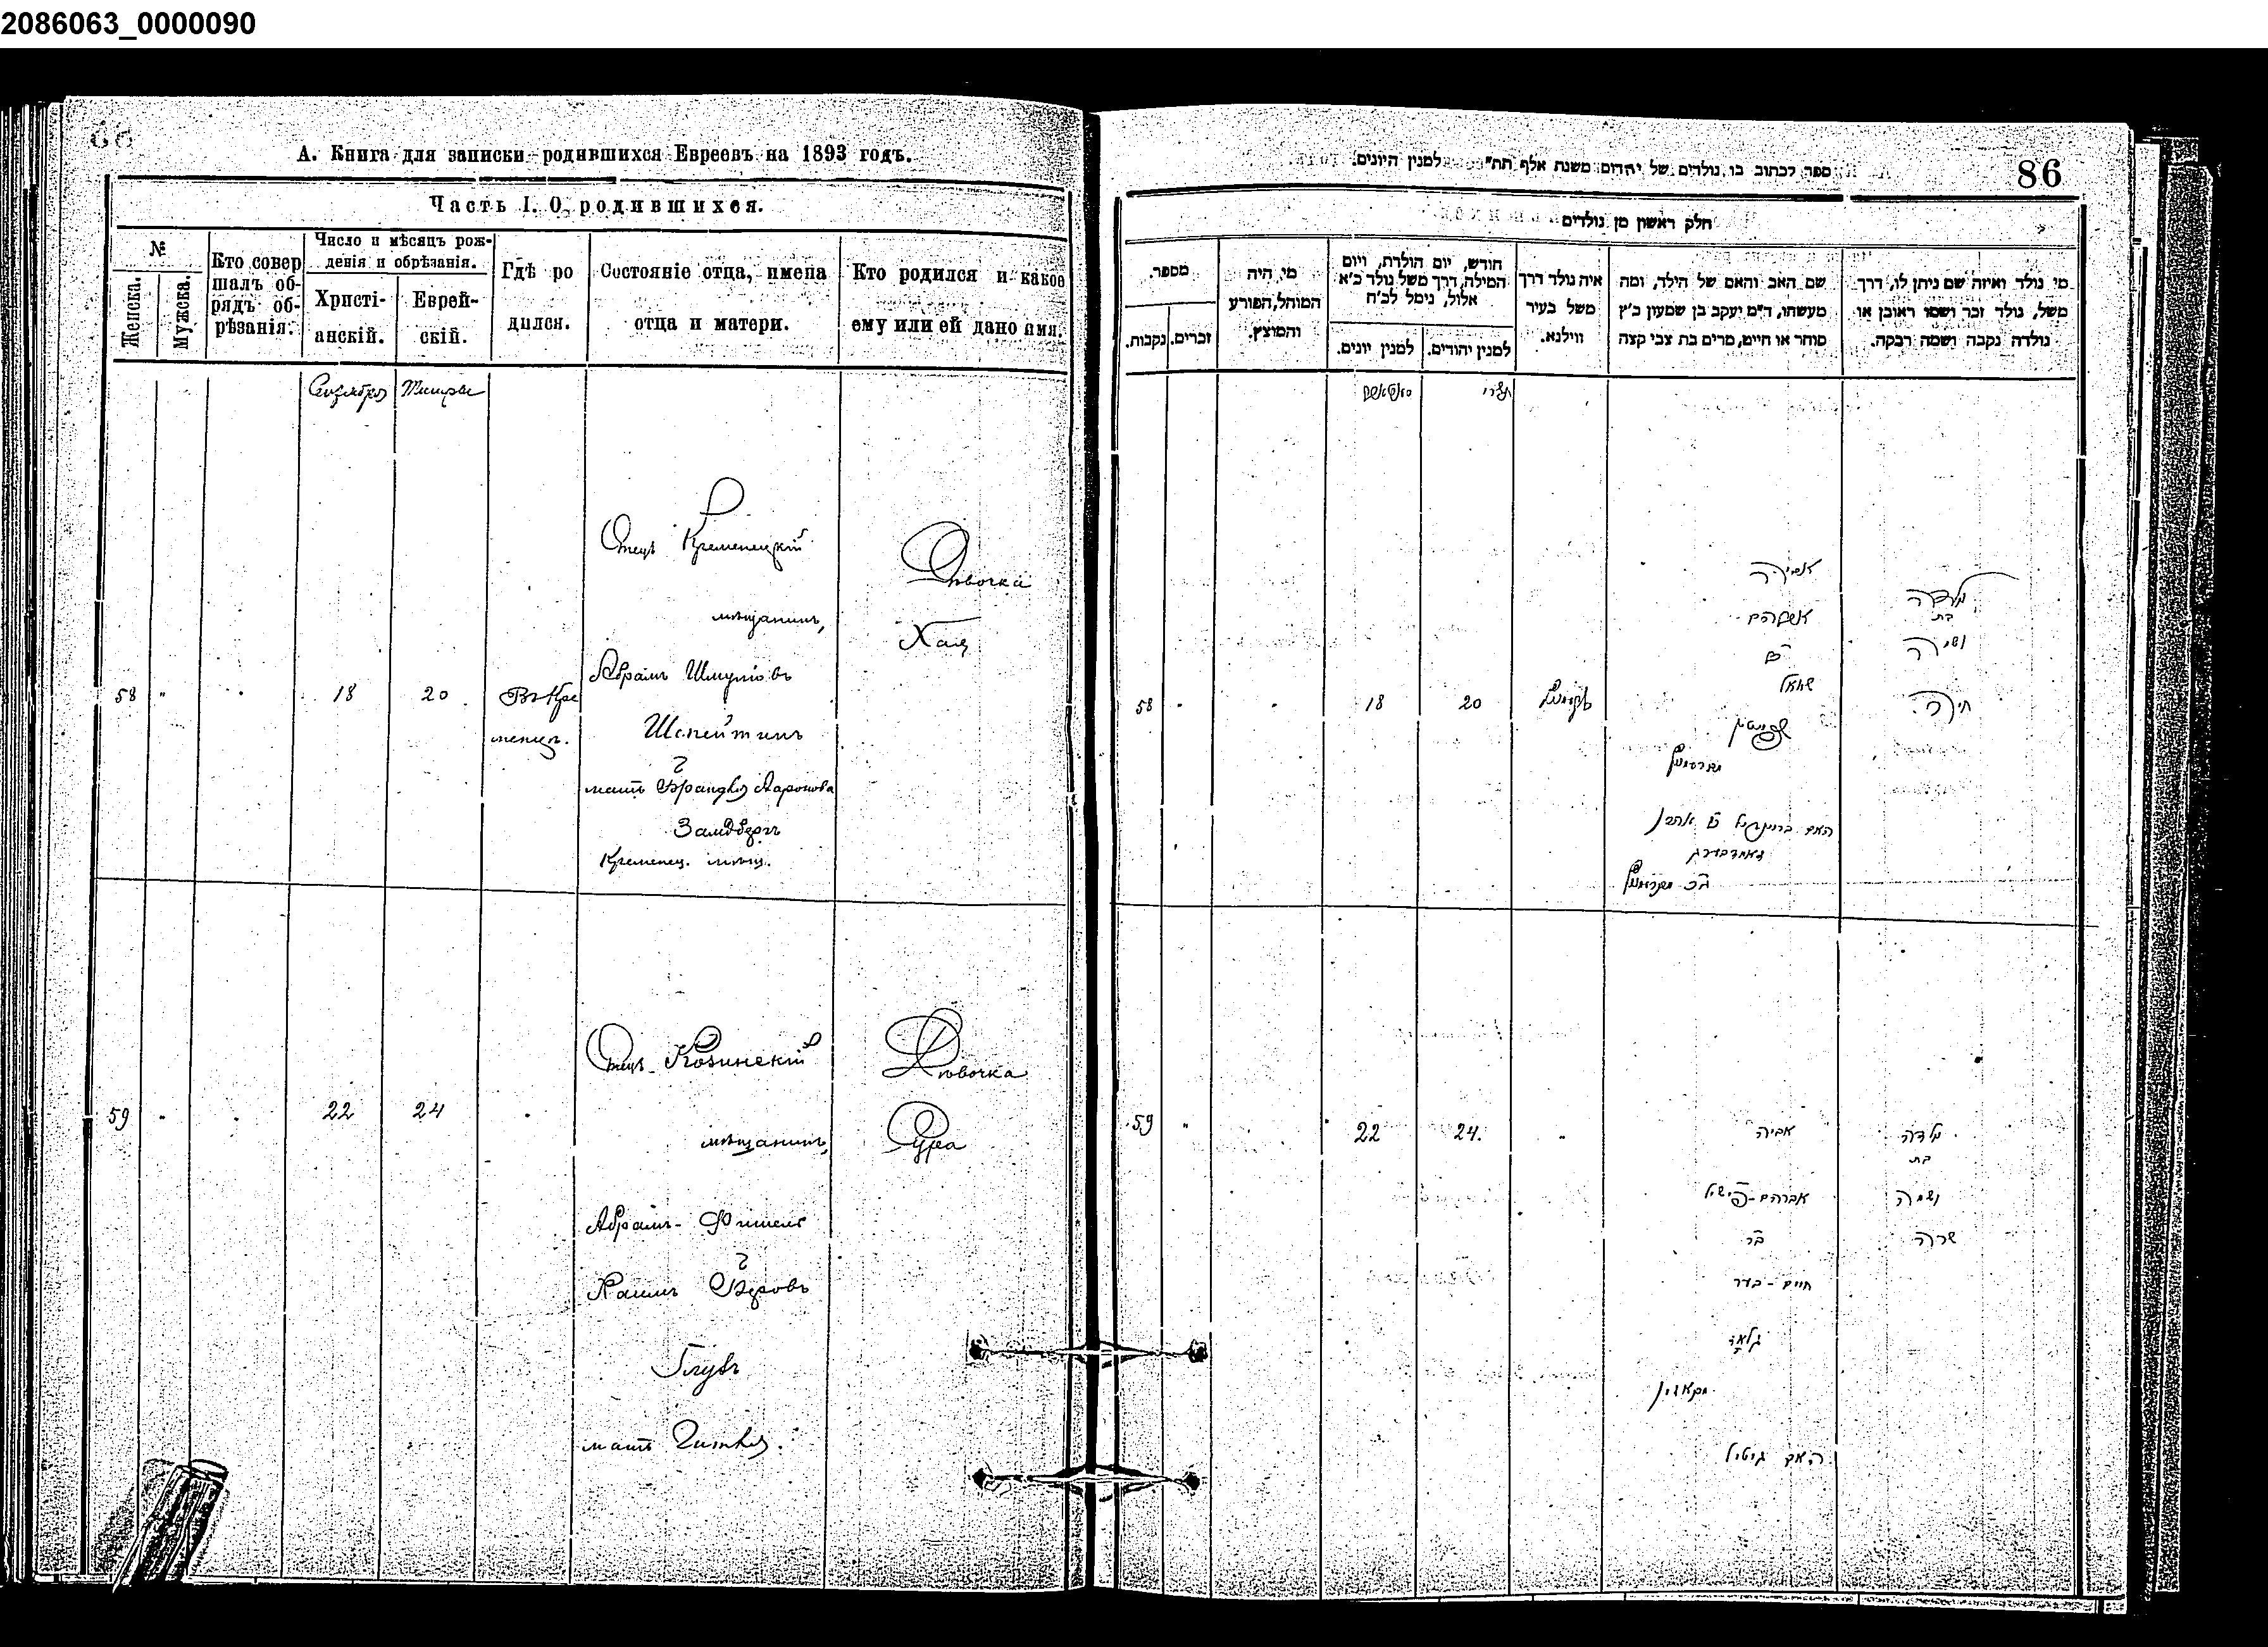 2086063_0000090
А. Книга для записки родившихся Евреевъ на 1893 годъ.
Часть I. О родившихся.
№
Женска.
Мужска.
Кто совер
шалъ об-
рядъ об-
рѣзанія.
Число и мѣсяцъ рож-
денія и обрѣзанія.
Христі-
анскій.
Еврей-
скій.
Гдѣ ро
дился.
Состояніе отца, имена
отца и матери.
Кто родился и какое
ему или ей дано имя.
Сентября
Тишры
58
"
18
20
Въ Кре
менцѣ.
Отецъ Кременецкій
мѣщанинъ,
Абрамъ Шмуліовъ
Шпейтинъ
мать Брандля Аароновa
Замдбергъ
Кременец. мѣщ.
Дѣвочка
Хая
59
22
24
Отецъ Козинскій
мѣщанинъ,
Абрамъ-Фишель
Хаимъ Беровъ
Глузъ
мать Гитля.
Дѣвочка
Сура
86
ספר לכתוב בו נולדים של יהדום משנת אלף תת״ למנין היונים
חלק ראשון מן נולדים
מספר.
נקבות.
זכרים.
מי היה
המוהל, הפורע
והמוצץ.
חודש, יום הולדת, ויום
המילה, דרך משל נולד כ״א
אלול, נימל לכ״ח
למנין יונים.
למנין יהודים.
איה נולד דרך
משל בעיר
ווילנא.
שם האב והאם של הילד, ומה
מעשהו, ד״מ יעקב בן שמעון כ״ץ
סוחר או חייט, מרים בת צבי קצה
מי נולד ואיזה שם ניתן לו, דרך
משל, נולד זכר ושמו ראובן או
נולדה נקבה ושמה רבקה.
תשרי
58
18
20
אביה
אברהם
שמואל
האם
אהרן
נולדה
בת
ושמה
חיה
59
"
22
24.
"
אביה
אברהם-פישיל
בר
חיים-בער
האם גיטיל
נולדה
בת
ושמה
שרה